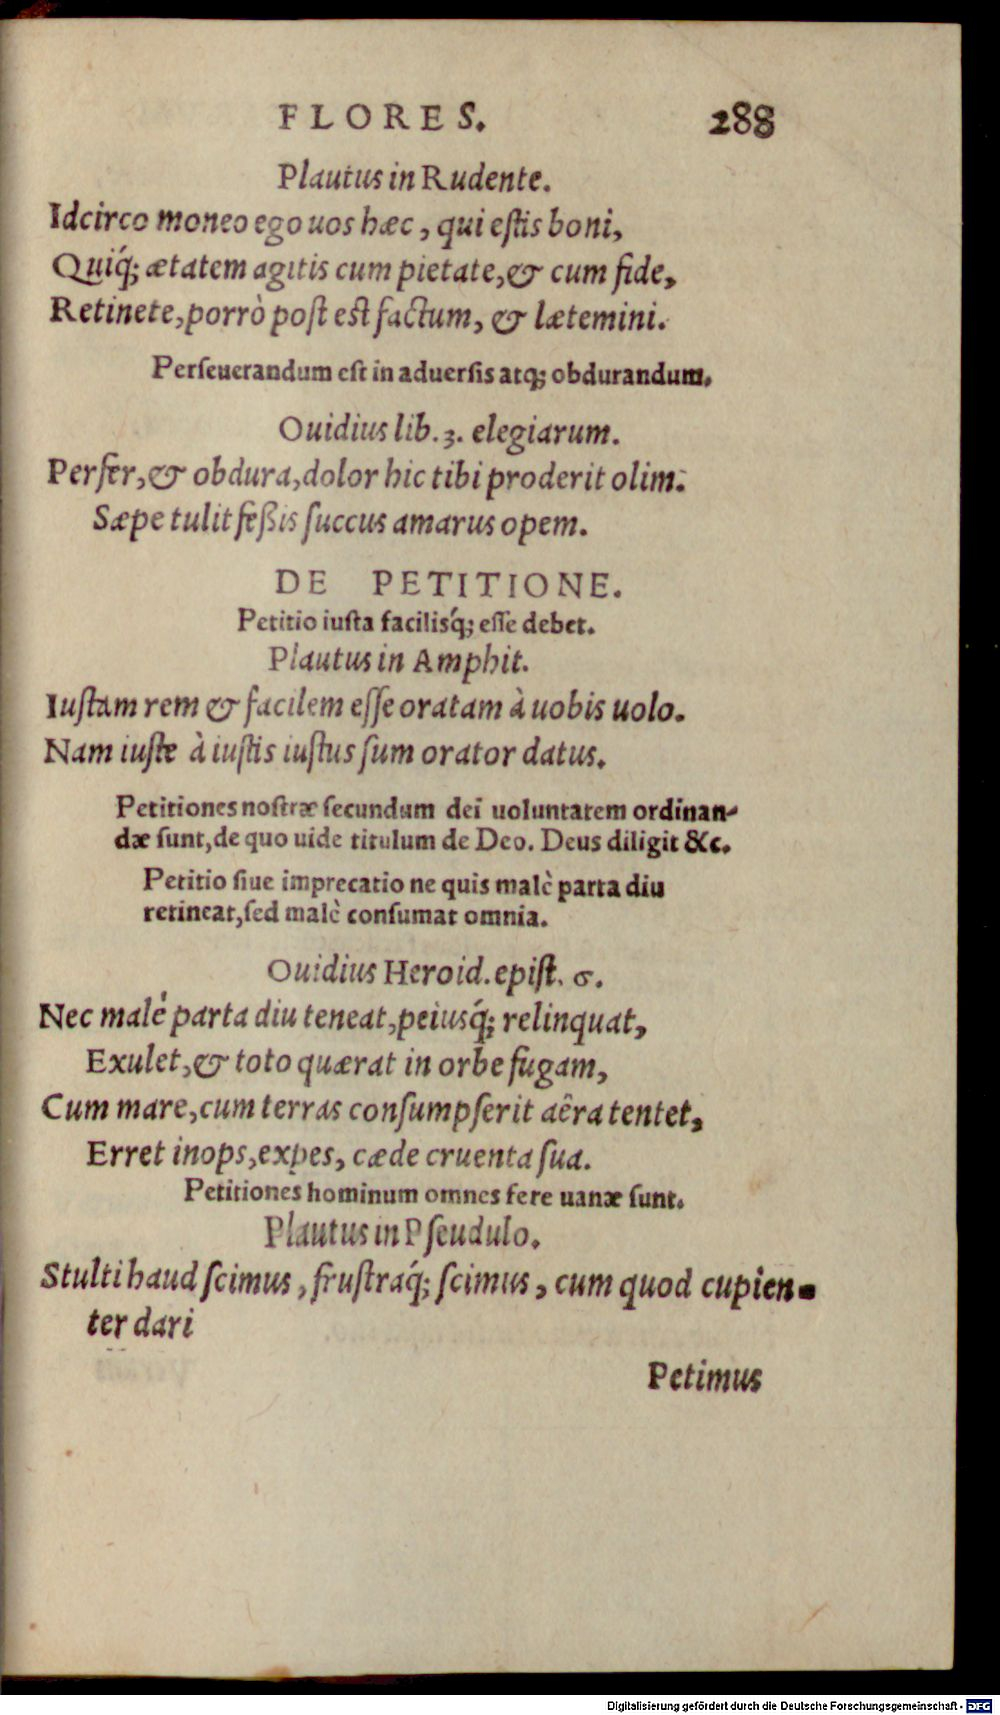 FLORES. 288
Plautus in Rudente.
Idcirco moneo ego uos hæc, qui eſtis boni,
Quiq́; ætatem agitis cum pietate, & cum fide,
Retinete, porrò poſt eſt factum, & lætemini.
Perſeuerandum eſt in aduerſis atq; obdurandum.
Ouidius lib. 3. elegiarum.
Perfer, & obdura, dolor hic tibi proderit olim:
Sæpe tulit feßis ſuccus amarus opem.
DE PETITIONE.
Petitio iuſta facilisq́; eſſe debet.
Plautus in Amphit.
Iuſtam rem & facilem eſſe oratam à uobis uolo.
Nam iuſte à iuſtis iuſtus ſum orator datus.
Petitiones noſtræ ſecundum dei uoluntatem ordinan-
dæ ſunt, de quo uide titulum de Deo. Deus diligit &c.
Petitio ſiue imprecatio ne quis malè parta diu
retineat, ſed malè conſumat omnia.
Ouidius Heroid. epiſt. 6.
Nec malè parta diu teneat, peiusq́; relinquat,
Exulet, & toto quærat in orbe fugam,
Cum mare, cum terras conſumpſerit aëra tentet,
Erret inops, expes, cæde cruenta ſua.
Petitiones hominum omnes fere uanæ ſunt.
Plautus in Pſeudulo.
Stulti haud ſcimus, fruſtraq́; ſcimus, cum quod cupien-
ter dari
Petimus
Digitalisierung gefördert durch die Deutsche Forschungsgemeinschaft - DFG